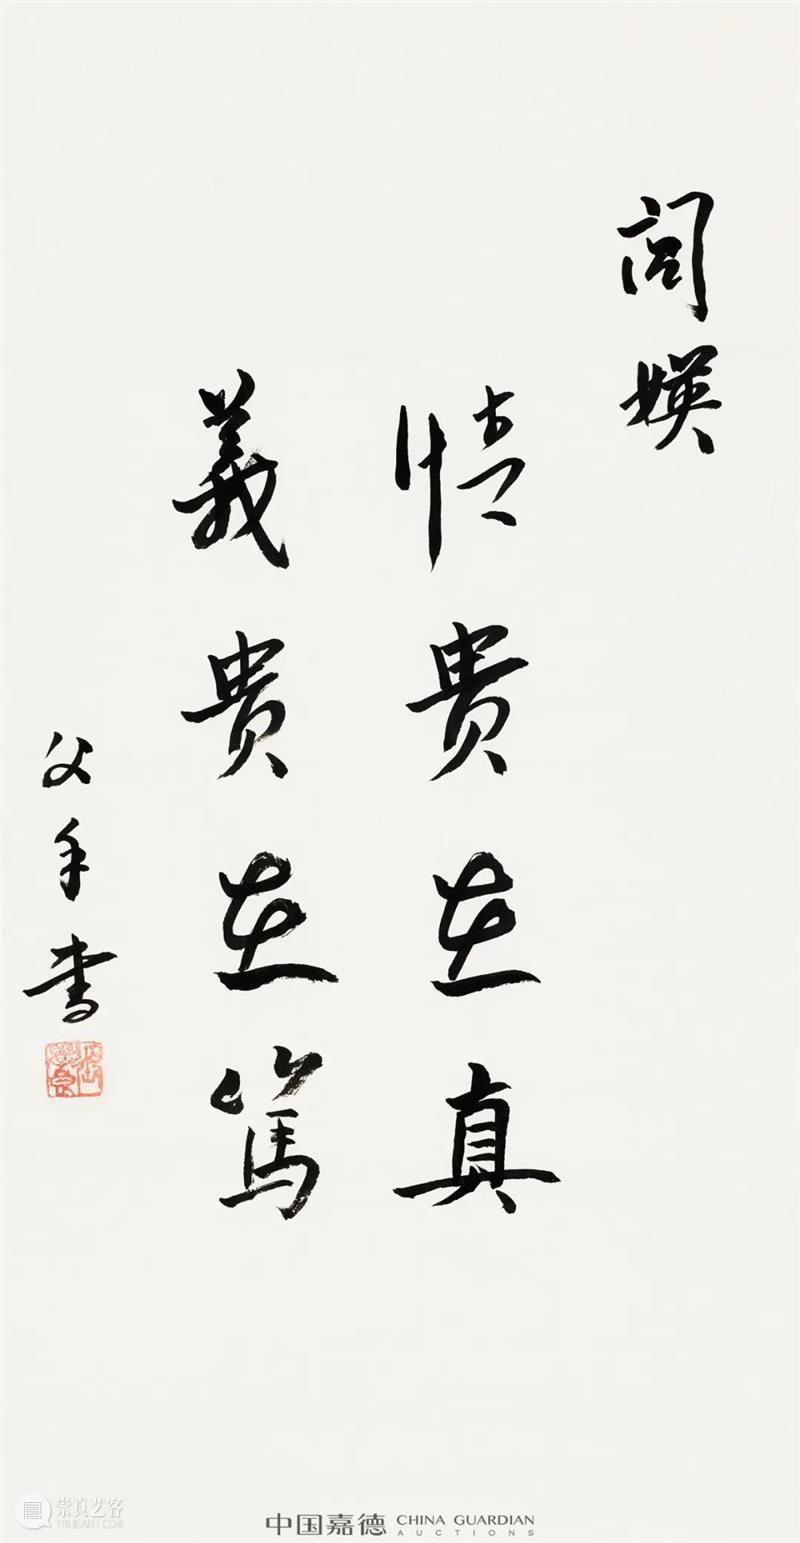 閭媖
情贵在真
義贵在篤
父手書
崇真艺客
TRUEART.COM
中国嘉德 CHINA GUARDIAN
AUCTIONS